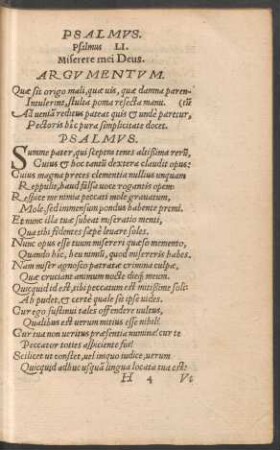 PSALMVS.
Psalmus LI.
Miserere mei Deus.
ARGVMENTVM.
Quæ sit origo mali, quæ uis, quæ damna paren-
Intulerint, stulta poma resecta manu. (tũ
Ad ueniã reditus pateat quis et unde paretur,
Pectoris hîc pura simplicitate docet.
PSALMVS.
Summe pater, qui sceptra tenes altissima rerũ,
Cuius et hoc tantũ dextera claudit opus:
Cuius magna preces clementia nullius unquam
Reppulit, haud falsa uoce rogantis opem:
Respice me nimia peccati mole grauatum,
Mole, sed immensum pondus habente premi.
Et nunc illa tuæ subeat miseratio menti,
Qua tibi fidentes sæpè leuare soles.
Nunc opus esse tuum misereri quæso memento,
Quando hîc, heu nimiũ, quod misereris habes.
Nam miser agnosco patratæ crimina culpæ,
Quæ cruciant animum nocte dieq́ meum.
Quicquid id est, tibi peccatum est notissime soli:
Ab pudet, et certè quale sit ipse uides.
Cur ego sustinui tales offendere uultus,
Qualibus est uerum notius esse nihil?
Cur tua non ueritus præsentia numina? cur te
Peccator toties aspiciente fui?
Scilicet ut constet, uel iniquo iudice, uerum
Quicquid adhuc usquã lingua locuta tua est:
H 4 Vt